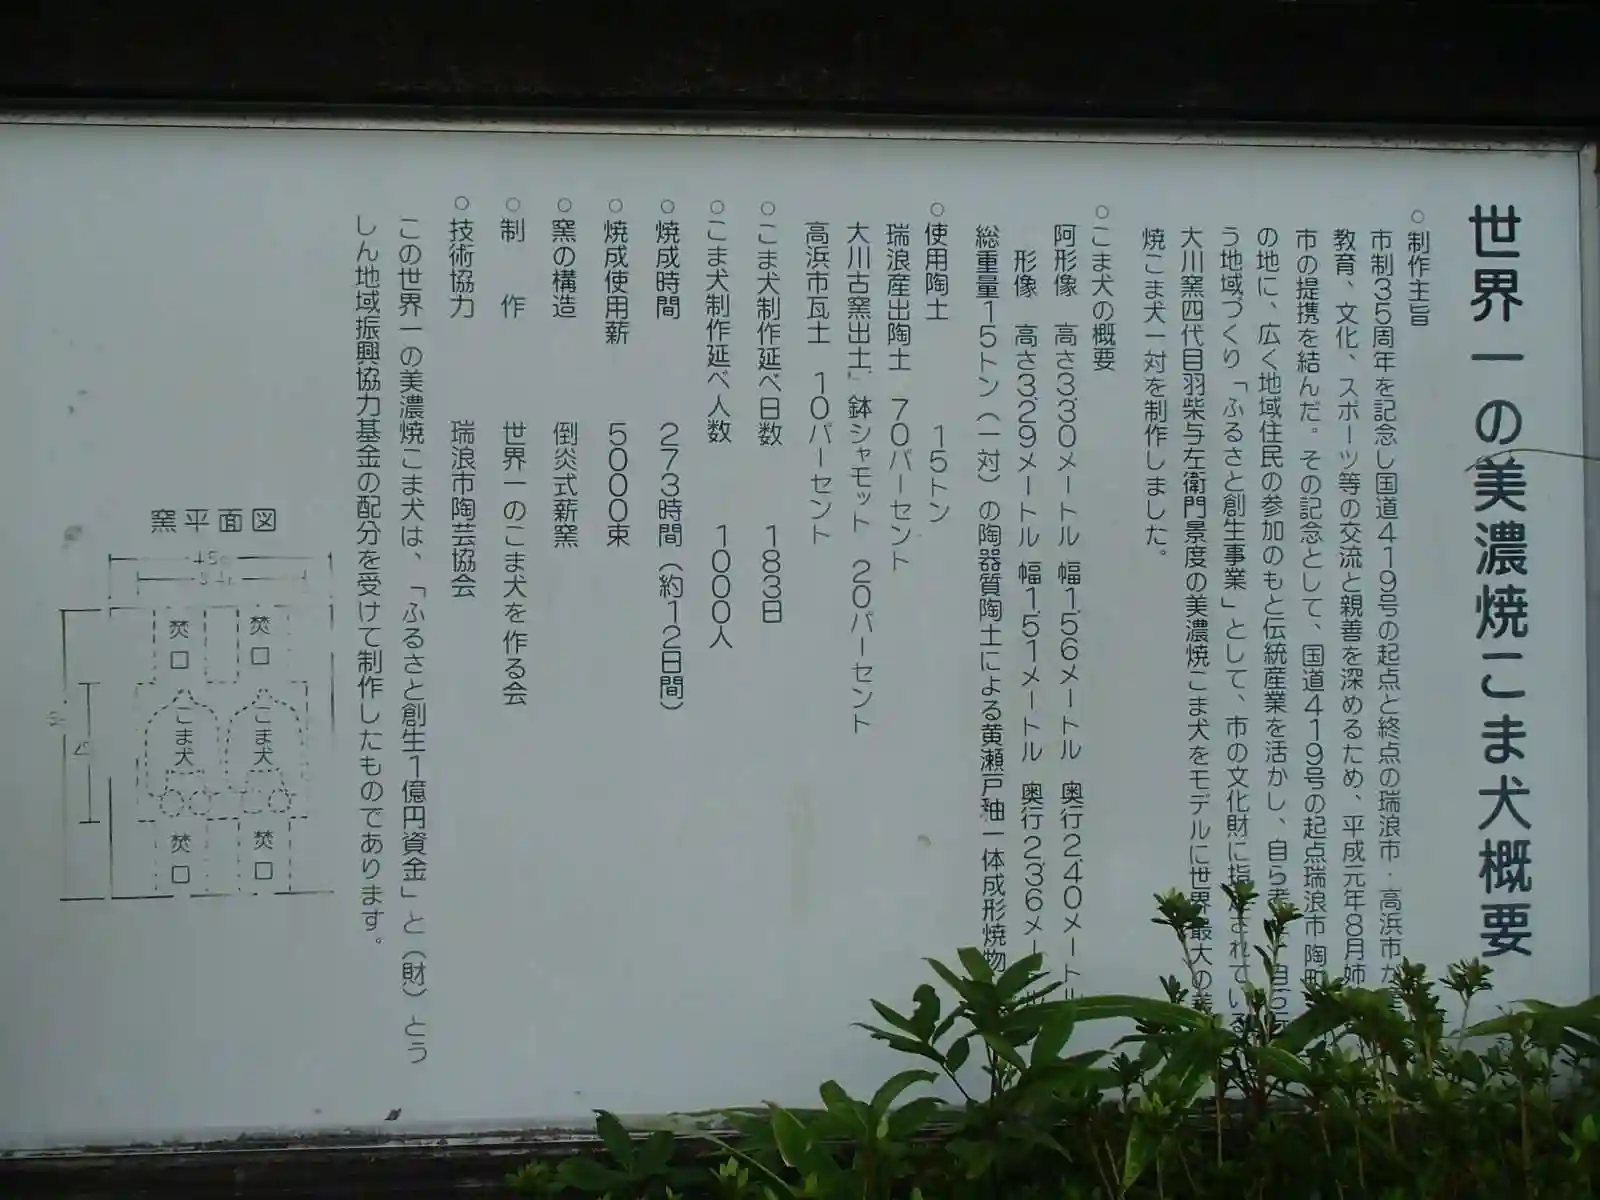 世界一の美濃焼こま犬概要
○制作主旨
市制35周年を記念し国道419号の起点と終点の瑞浪市・高浜市が
教育、文化、スポーツ等の交流と親善を深めるため、平成元年8月姉
市の提携を結んだ。その記念として、国道419号の起点瑞浪市陶町
の地に、広く地域住民の参加のもと伝統産業を活かし、自ら考え自ら行
う地域づくり「ふるさと創生事業」として、市の文化財に指定されている
大川窯四代目羽柴与左衛門景度の美濃焼こま犬をモデルに世界最大の美
焼こま犬一対を制作しました。
○こま犬の概要
阿形像 高さ3.30メートル 幅1.56メートル 奥行2.40メートル
形像 高さ3.29メートル 幅1.51メートル 奥行2.36メー
総重量15トン(一対)の陶器質陶土による黄瀬戸釉一体成形焼物
○使用陶土 15トン
瑞浪産出陶土 70パーセント
大川古窯出土」鉢シャモット 20パーセント
高浜市瓦土 10パーセント
○こま犬制作延べ日数 183日
○こま犬制作延べ人数 1000人
○焼成時間 273時間(約12日間)
○焼成使用薪 5000束
○窯の構造 倒炎式薪窯
○制 作 世界一のこま犬を作る会
○技術協力 瑞浪市陶芸協会
この世界一の美濃焼こま犬は、「ふるさと創生1億円資金」と(財)とう
しん地域振興協力基金の配分を受けて制作したものであります。
窯平面図
焚口
焚口
こま犬
こま犬
焚口
焚口